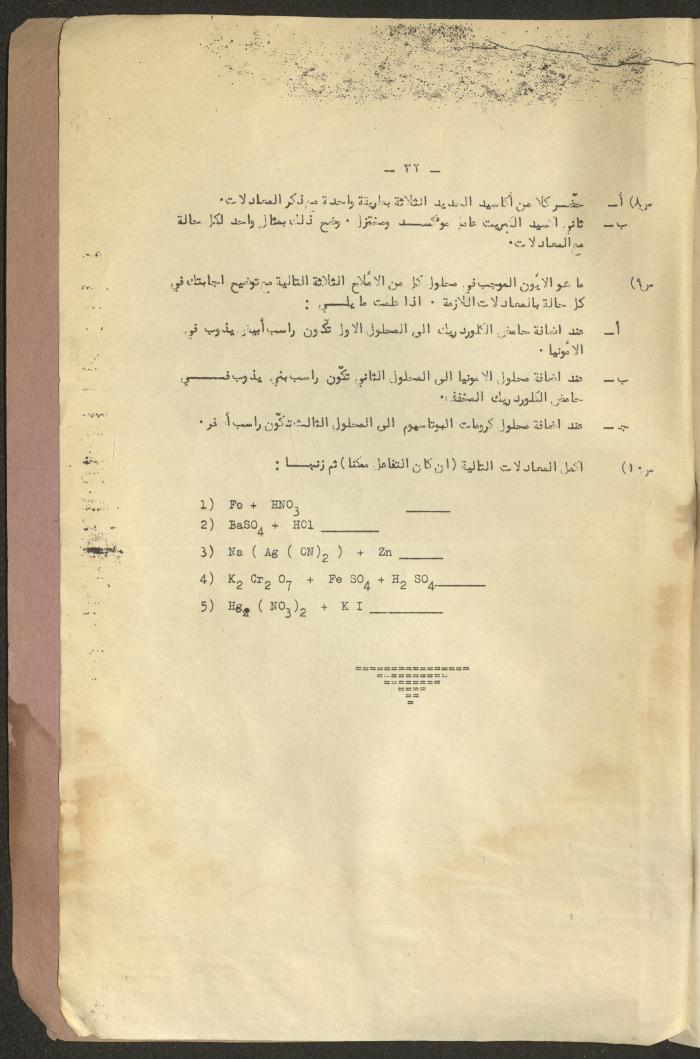 - ٣٢ -
س٨) أ- حضّر كلا من أكاسيد الحديد الثلاثة بطريقة واحدة مع ذكر المعادلات.
ب- ثاني اكسيد الكبريت عامل مؤكسد ومختزل . وضح ذلك بمثال واحد لكل حالة
مع المعادلات.
س٩) ما هو الايون الموجب في محلول كل من الأملاح الثلاثة التالية مع توضيح اجابتك في
كل حالة بالمعادلات اللازمة . اذا علمت ما يلي :
أ- عند اضافة حامض الكلوردريك الى المحلول الاول تكون راسب أبيض يذوب في
الأمونيا .
ب- عند اضافة محلول الامونيا الى المحلول الثاني تكوّن راسب بني يذوب في
حامض الكلوردريك المخفف.
جـ- عند اضافة محلول كرومات البوتاسيوم الى المحلول الثالث تكوّن راسب أصفر.
س١٠) اكمل المعادلات التالية (ان كان التفاعل ممكنا) ثم زنها :
1) Fe + HNO3 ______
2) BaSO4 + HCl ______
3) Na ( Ag ( CN)2 ) + Zn ______
4) K2 Cr2 O7 + Fe SO4 + H2 SO4 ______
5) Hg2 ( NO3)2 + K I ______